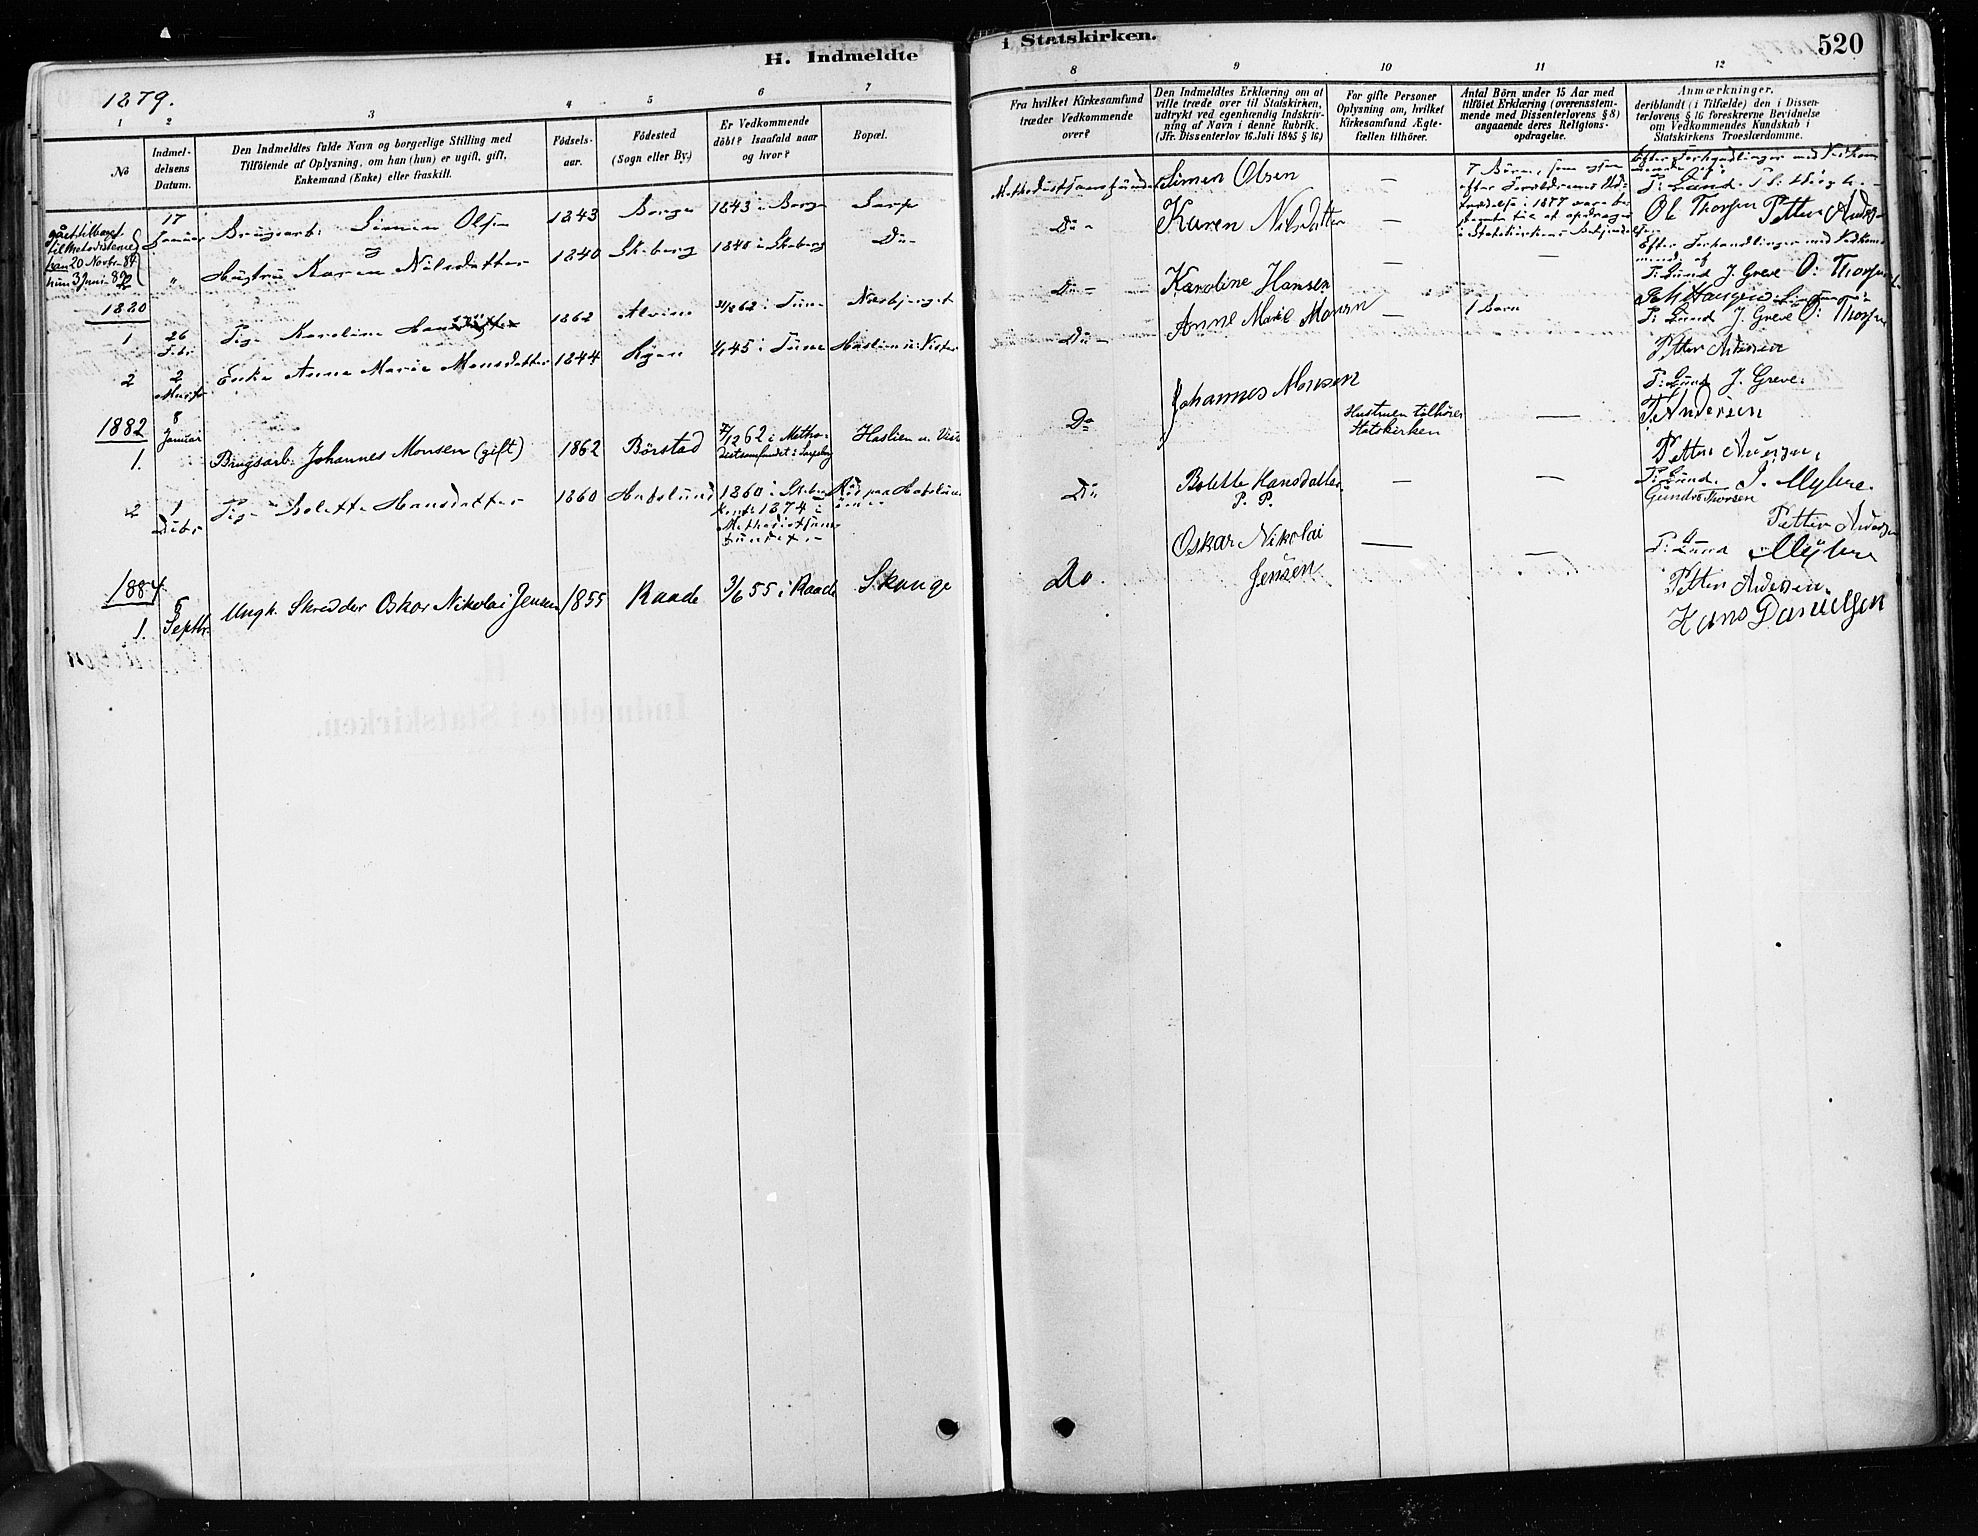 H. Indmeldte
i Statskirken.
520
1879.
1
2
3
4
5
6
7
8
9
10
11
12
No
Indmel-
delsens
Datum.
Den Indmeldtes fulde Navn og borgerlige Stilling med
Tilföiende af Oplysning, om han (hun) er ugift, gift,
Enkemand (Enke) eller fraskilt.
Födsels-
aar.
Födested
(Sogn eller By.)
Er Vedkommende
döbt? Isaafald naar
og hvor?
Bopæl.
Fra hvilket Kirkesamfund
træder Vedkommende
over?
Den Indmeldtes Erklæring om at
ville træde over til Statskirken,
udtrykt ved egenhændig Indskriv-
ning af Navn i denne Rubrik.
(Jfr. Dissenterlov 16. Juli 1845 § 16)
For gifte Personer
Oplysning om, hvilket
Kirkesamfund Ægte-
fællen tilhörer.
Antal Börn under 15 Aar med
tilföiet Erklæring (overensstem-
mende med Dissenterlovens § 8)
angaaende deres Religions-
opdragelse.
Anmærkninger,
deriblandt (i Tilfælde) den i Dissen-
terlovens § 16 foreskrevne Bevidnelse
om Vedkommendes Kundskab i
Statskirkens Troeslærdomme.
gået tilbage
til Metodisterne
han 20 Novbr. 84
hun 3 Juni 89
17 Januar Brugsarb. Simen Olsen 1843 Borge 1843 i Borge Sarp
Simen Olsen —
" Hustru Karen Nilsdatter 1840 Skeberg 1840 i Skeberg Do
Do Karen Nilsdatter —
7 Börn, som ogsaa
efter Forældrenes Ud-
i 1877 var
at opdrages
i Statskirkens
Efter Forhandlinger med Vedkom
mende af
P. Lund
Ole Thorsen Petter Anders
1880
1 26 Febr Pige Karoline Hansdatter 1862 i Tune
Do Karoline Hansen — —
Efter Forhandlinger med Vedkom
mende af
P. Lund J. Greve O. Thorsen
2 2 Marts Enke Anne Marie Monsdatter 1844 i Tune Haslien u. Vister
Do Anne Marie Monsen — 1 Barn
P. Lund J. Greve O. Thorsen
Petter Andersen
1882
1. 8 Januar Brugsarb. Johannes Monsen (gift) 1862 Börstad 7/12 62 i Metho-
distsamfundet i Sarpsborg Haslien u. Vist
Do Johannes Monsen Hustruen tilhörer
Statskirken —
P. Lund J. Greve.
P. Andersen
2 1 Pige Bolette Hansdatter 1860 Hafslund 1860 i Skeberg
1874 i
Methodistsam-
fundet.
Do Bolette Hansdatter
P. P. — —
Petter Andersen
P. Lund. J. Myhre.
Gunder Thorsen
1884
1. 5 Septbr. Ungk. Skredder Oskar Nikolai Jensen 1855 Raade 3/6 55 i Raade Skange
Do. Oskar Nikolai
Jensen — —
Petter Andersen
P. Lund Myhre
Petter Andersen.
Hans Danielsen